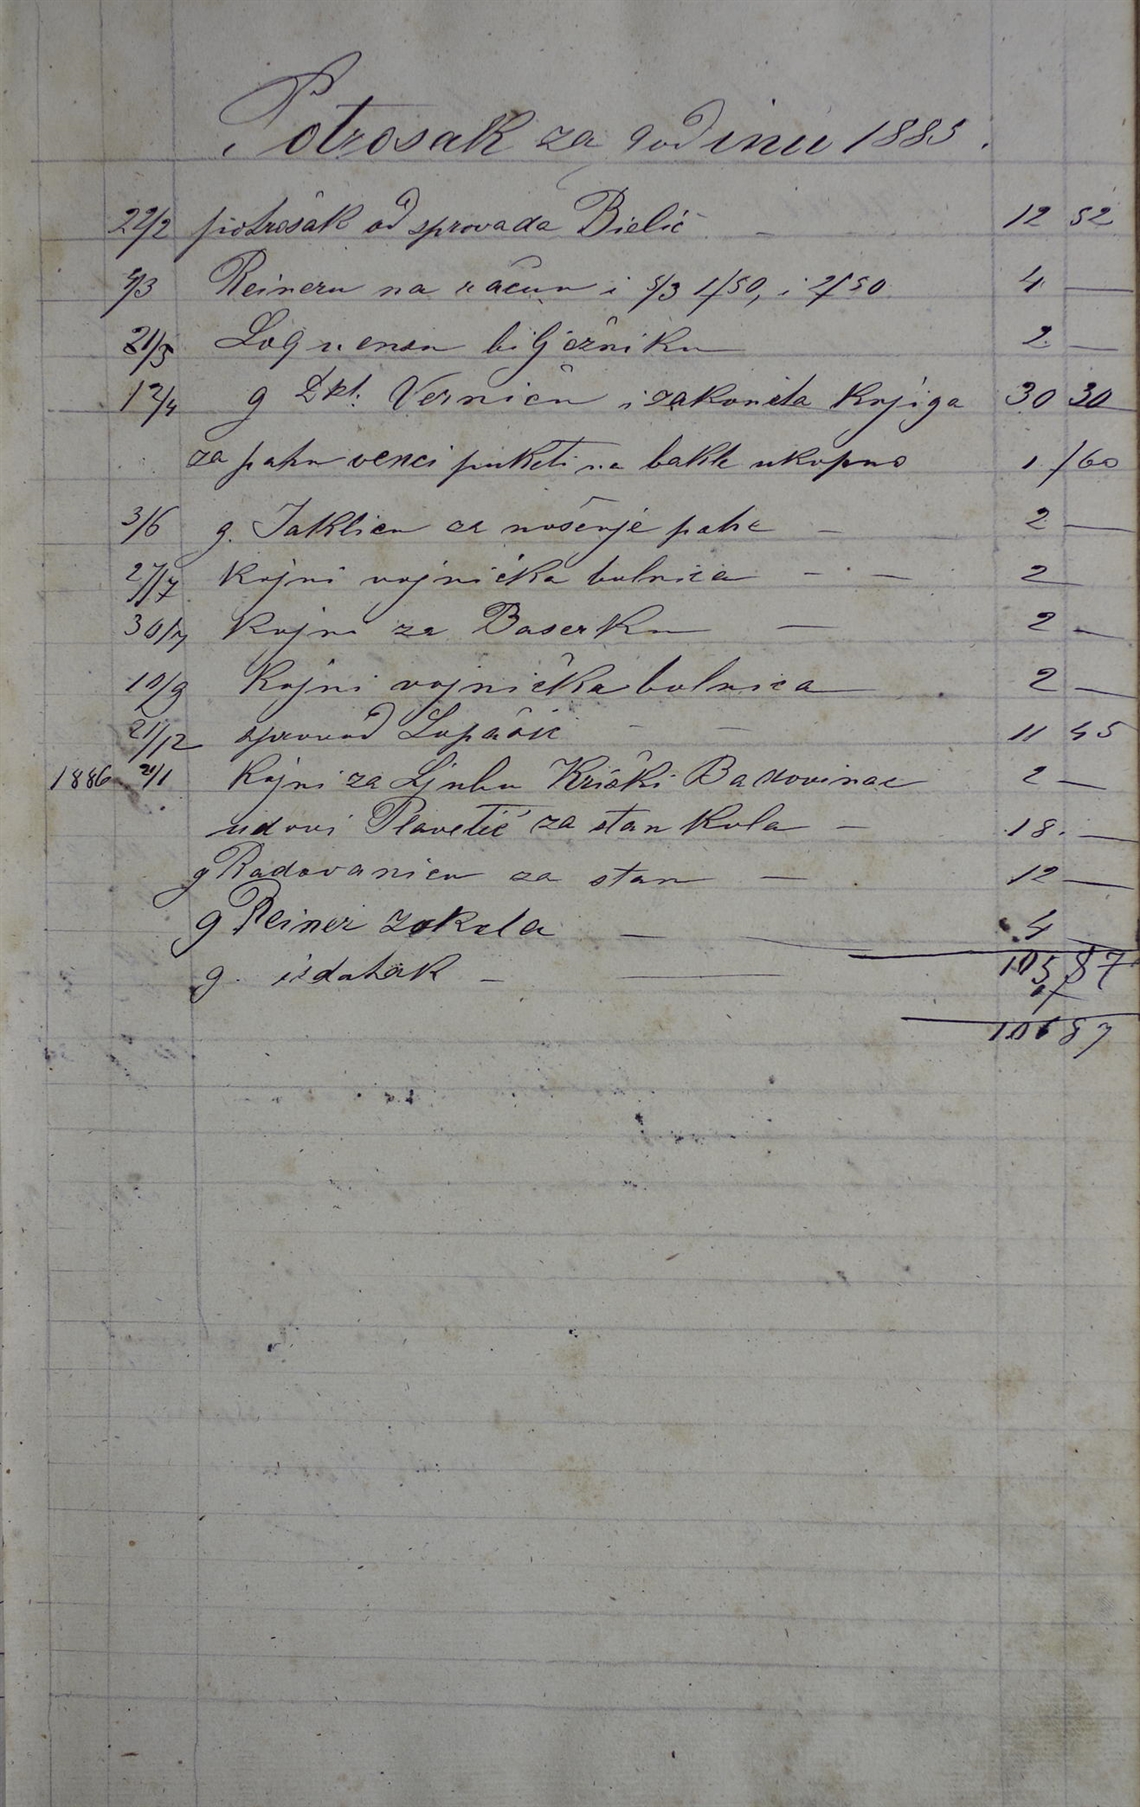 Potrosak za godinu 1885.
22/2 potrošak od sprovada Bielić — 12 52
4/3 Reineru na račun i 5/3 1/50, i 2/50. 4 —
21/3 bilježniku 2. —
12/4 g Dkt. Verniču i zakonita knjiga 30 30
za venci puketi na bakle ukupno 1./60
3/6 g. Jakliču za nošenje — 2 —
27/7 Knjni vojnička bolnica — — 2
30/7 Knjni za Baserku — 2 —
10/9 Knjni vojnička bolnica 2 —
21/12 sprovod Lopašić — — 11 45
1886 21/1 Knjni za Ljubu Kriški Badovinac 2 —
udovi Plavetić za stan kola — 18. —
g Radovaniću za stan — 12 —
g Reiner za kola — 4 —
105,87
g. izdatak — — 1/—
106 87